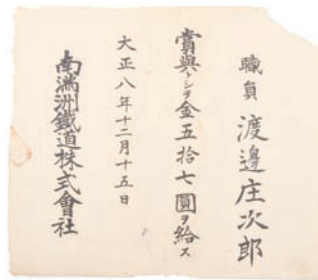 職員 渡邊庄次郎
賞與トシテ金五拾七圓ヲ給ス
大正八年十二月十五日
南滿洲鐵道株式會社